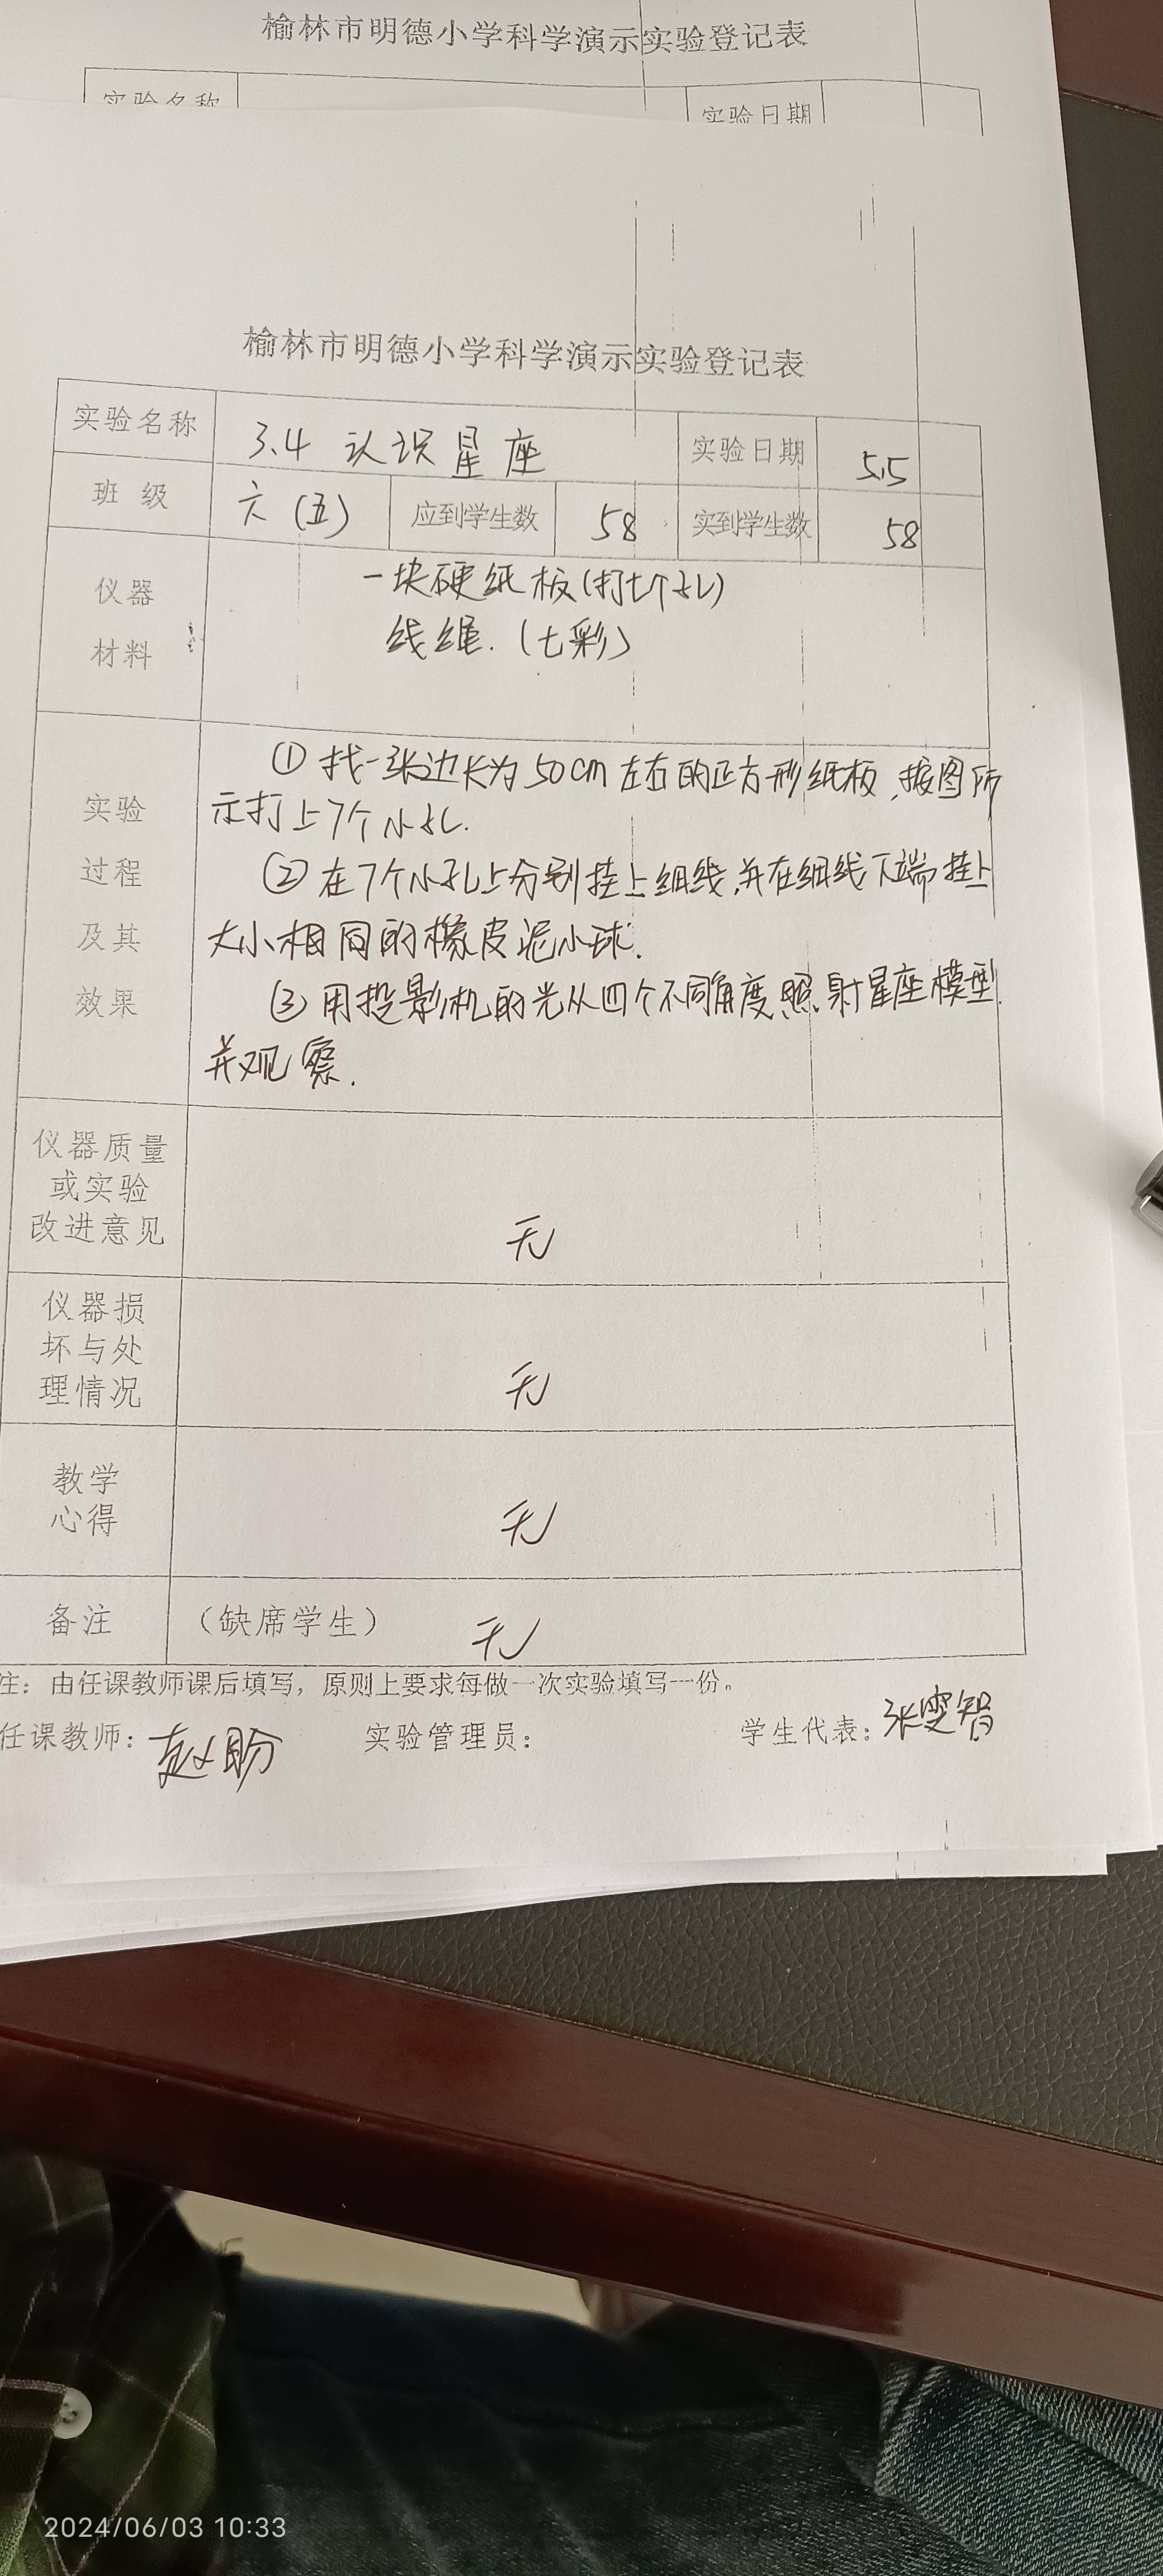 榆林市明德小学科学演示实验登记表
实验名称 实验日期
榆林市明德小学科学演示实验登记表
实验名称 3.4 认识星座 实验日期 5.5
班 级 六(五) 应到学生数 58 实到学生数 58
仪器 一块硬纸板(打七个孔)
材料 线绳.(七彩)
①找一张边长为50cm左右的正方形纸板,按图所
实验 示打上7个小孔.
过程 ②在7个小孔上分别挂上细线,并在细线下端挂上
及其 大小相同的橡皮泥小球.
效果 ③用投影机的光从四个不同角度照射星座模型
并观察.
仪器质量
或实验
改进意见 无
仪器损
坏与处
理情况 无
教学
心得 无
备注 (缺席学生) 无
注:由任课教师课后填写,原则上要求每做一次实验填写一份。
任课教师:赵盼 实验管理员: 学生代表:张雯智
2024/06/03 10:33